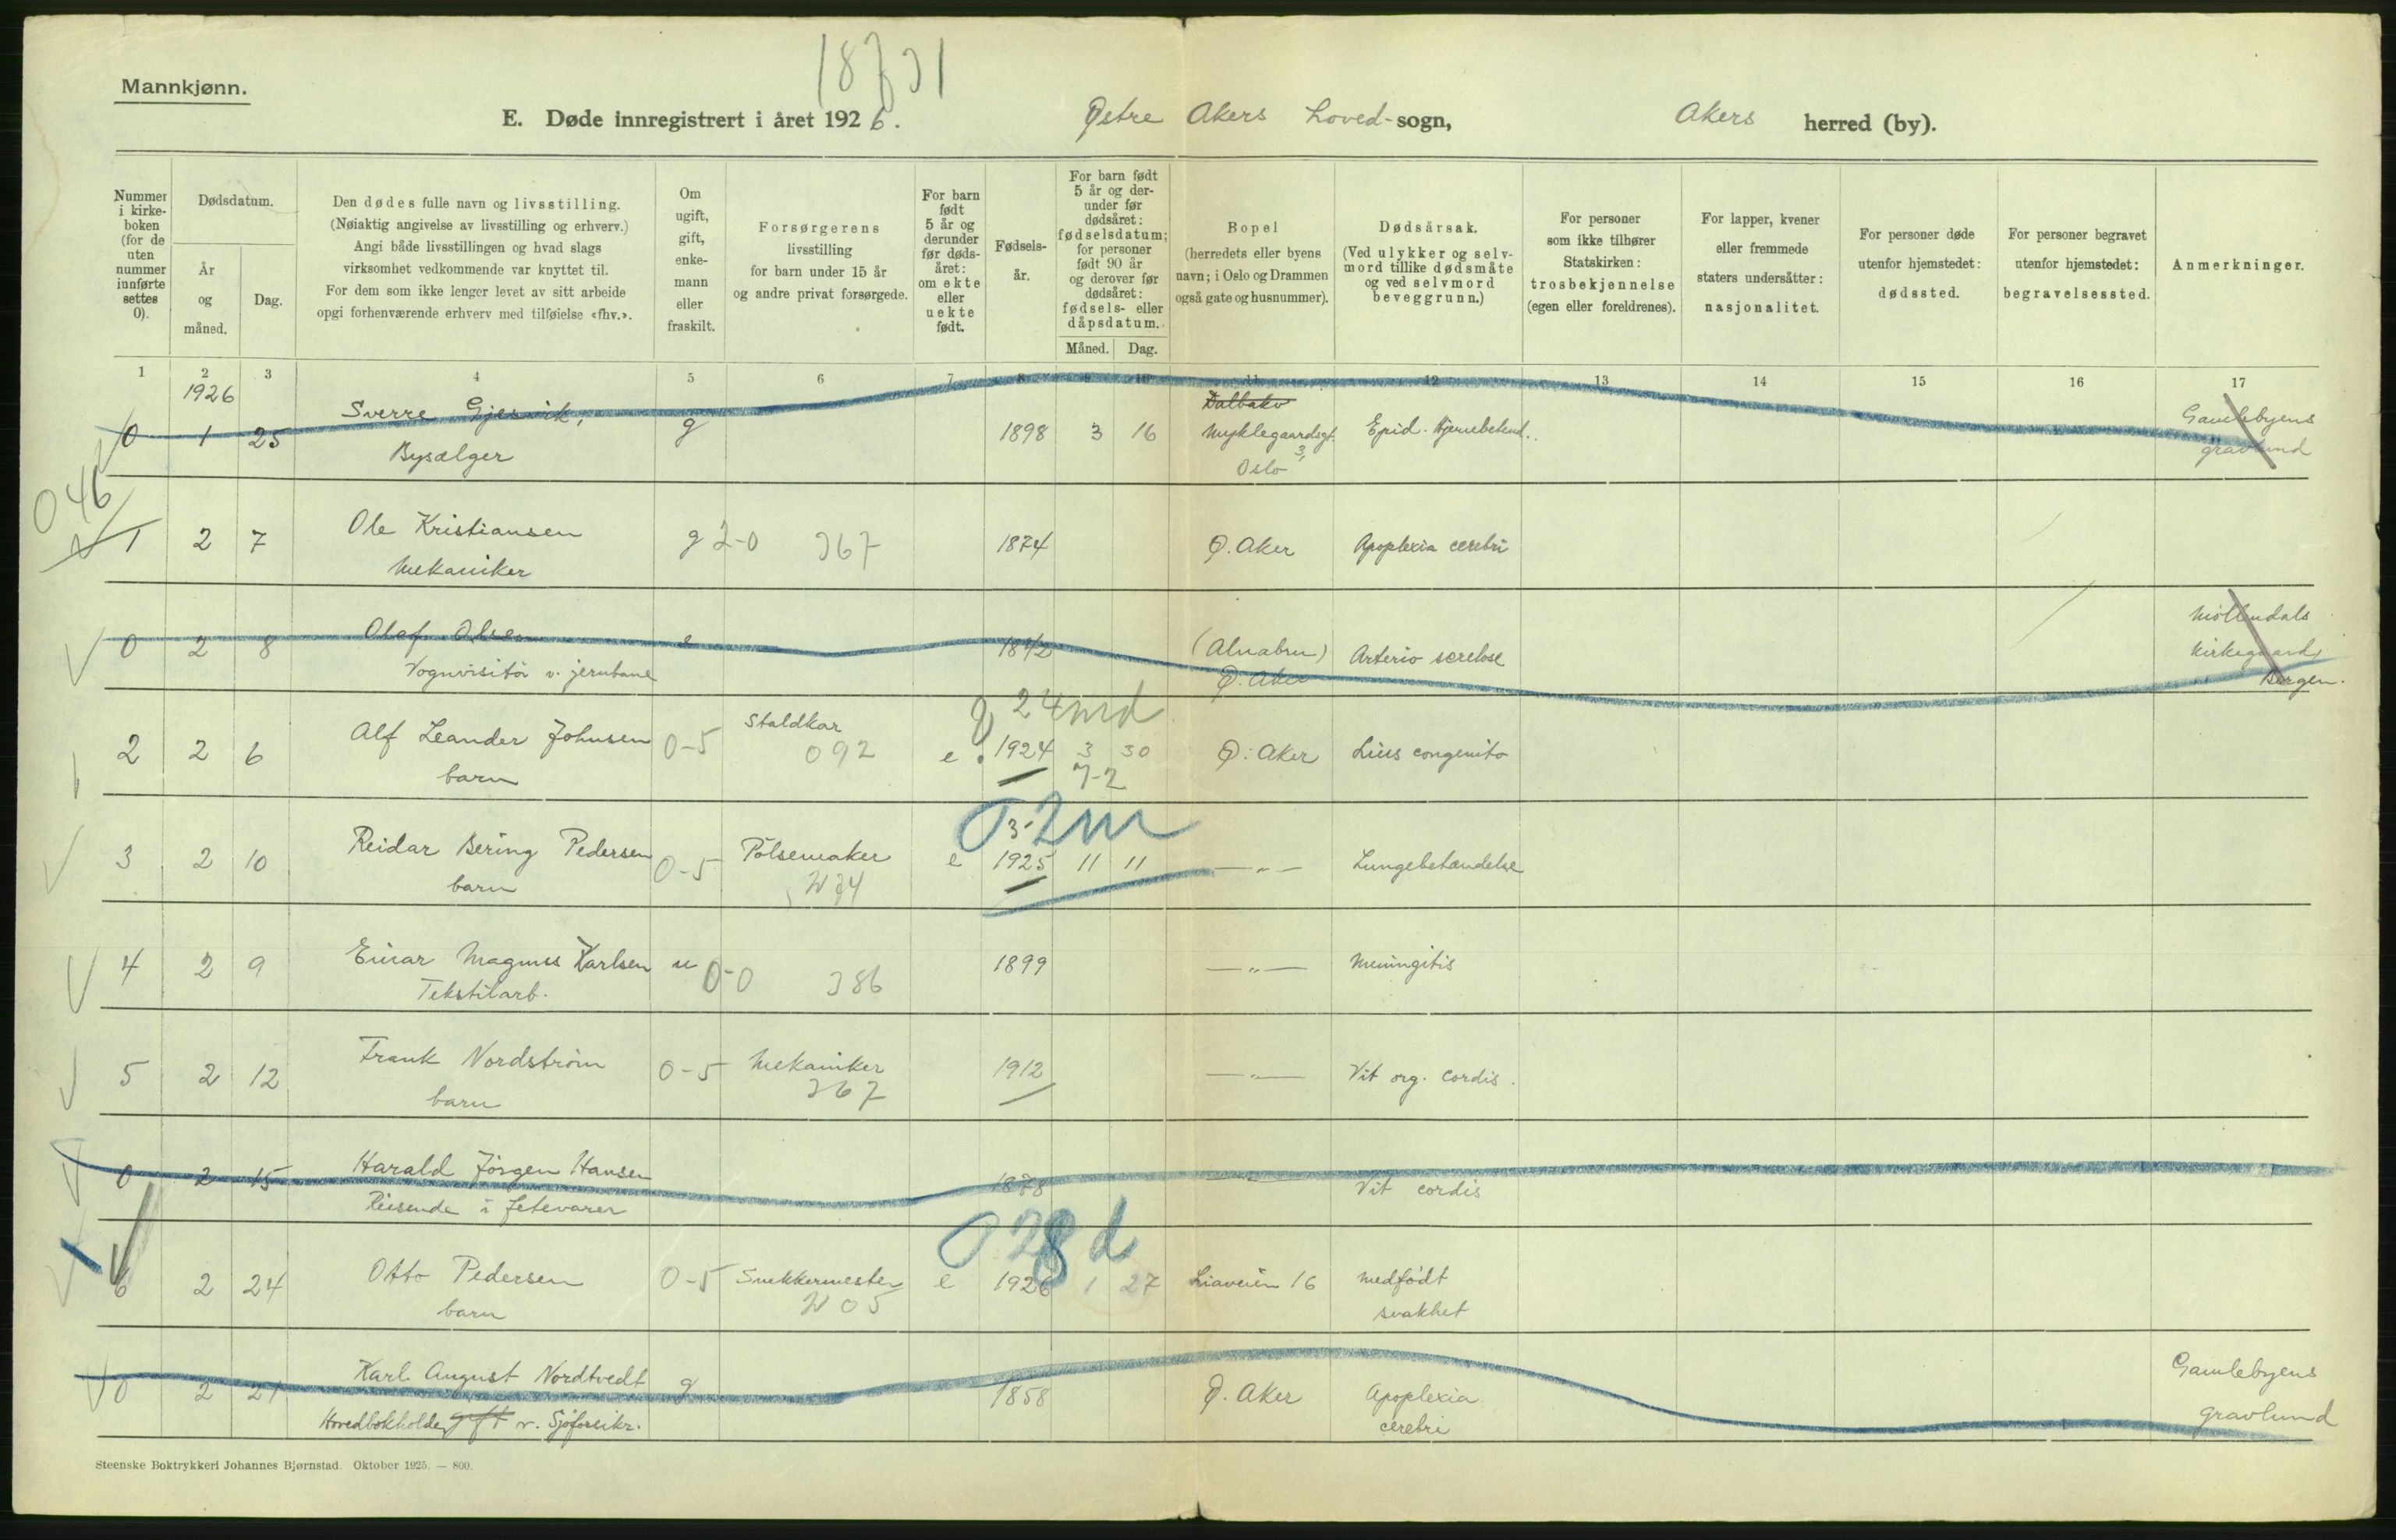 18731
Mannkjønn.
E. Døde innregistrert i året 1926.
Østre Akers Hoved-sogn,
Akers herred (by).
Nummer i kirke-boken (for de uten nummer innførte settes 0).
Dødsdatum.
År og måned.
Dag.
Den dødes fulle navn og livsstilling.
(Nøiaktig angivelse av livsstilling og erhverv.)
Angi både livsstillingen og hvad slags
virksomhet vedkommende var knyttet til.
For dem som ikke lenger levet av sitt arbeide
opgi forhenværende erhverv med tilføielse «fhv.».
Om ugift, gift, enke-mann eller fraskilt.
Forsørgerens
livsstilling
for barn under 15 år
og andre privat forsørgede.
For barn født 5 år og derunder før døds-året: om ekte eller uekte født.
Fødsels-år.
For barn født 5 år og der-under før dødsåret: fødselsdatum; for personer født 90 år og derover før dødsåret: fødsels- eller dåpsdatum.
Måned. Dag.
Bopel
(herredets eller byens
navn; i Oslo og Drammen
også gate og husnummer).
Dødsårsak.
(Ved ulykker og selv-
mord tillike dødsmåte
og ved selvmord
beveggrunn.)
For personer
som ikke tilhører
Statskirken:
trosbekjennelse
(egen eller foreldrenes).
For lapper, kvener
eller fremmede
staters undersåtter:
nasjonalitet.
For personer døde
utenfor hjemstedet:
dødssted.
For personer begravet
utenfor hjemstedet:
begravelsessted.
Anmerkninger.
1 2 3 4 5 6 7 8 9 10 11 12 13 14 15 16 17
1926
0 1 25 Sverre Gjesvik, g 1898 3 16 Dalbakv Epid. Hjernebetend.. Gamlebyens
Bysælger Munklegaardsgt. 3, gravlund
Oslo
046
1 2 7 Ole Kristiansen g 2-0 367 1874 Ø. Aker Apoplexia cerebri
Mekaniker
0 2 8 Olaf Olsen e 1842 (Alnabru) Arterio sclerose Möllendals
Vognvisitör v. jernbane Ø. Aker kirkegaard,
Bergen.
24 md
2 2 6 Alf Leander Johnsen 0-5 Staldkar 092 e 1924 3 30 Ø. Aker Lues congenita
barn 7-2
3-2m
3 2 10 Reidar Bering Pedersen 0-5 Pölsemaker e 1925 11 11 —„— Lungebetændelse
barn W34
4 2 9 Einar Magnus Karlsen u 0-0 386 1899 —„— Meningitis
Tekstilarb.
5 2 12 Frank Nordström 0-5 Mekaniker 1912 —„— Vit org. cordis.
barn 367
0 2 15 Harald Jörgen Hansen 1878 —„— Vit cordis
Reisende i fetevarer
28 d
6 2 24 Otto Pedersen 0-5 Snekkermester e 1926 1 27 Liaveien 16 medfödt
barn W05 svakhet
0 2 21 Karl August Nordtvedt g 1858 Ø. Aker Apoplexia Gamlebyens
Hovedbokholder gift v. Sjöforsikr. cerebri gravlund
Steenske Boktrykkeri Johannes Bjørnstad. Oktober 1925. — 800.